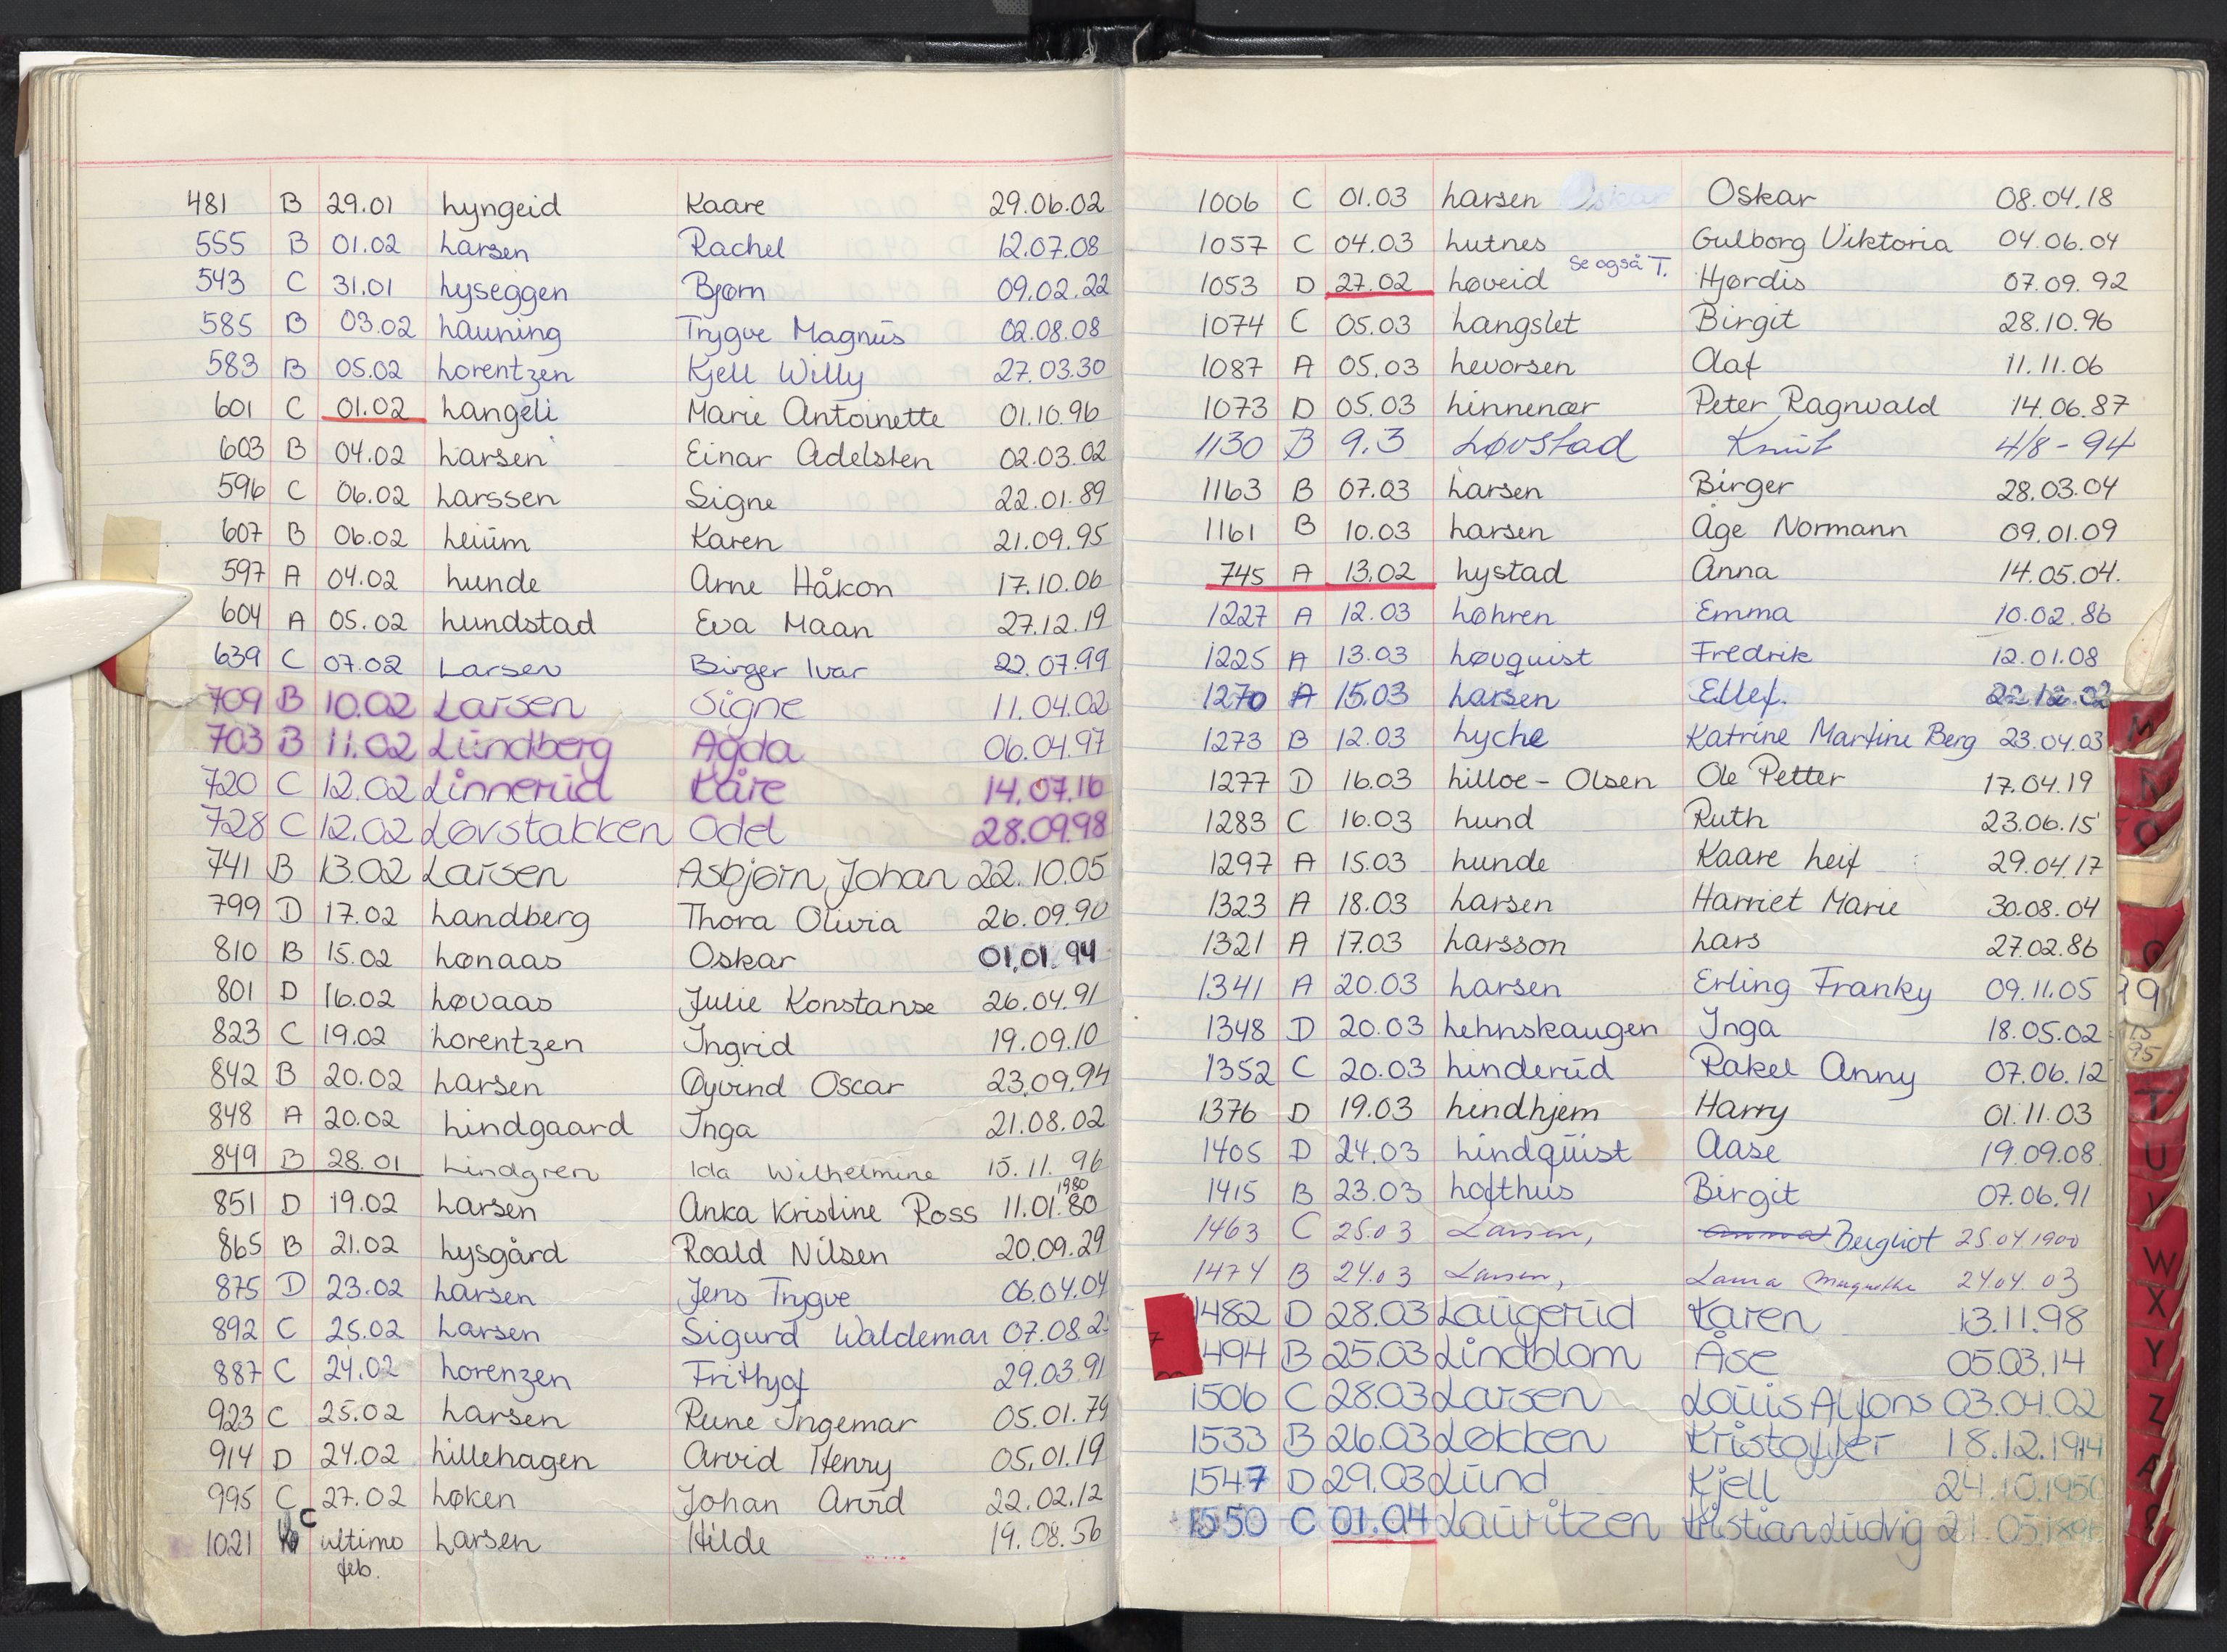 481 B 29.01 Lyngeid Kaare 29.06.02
555 B 01.02 Larsen Rachel 12.07.08
543 C 31.01 Lyseggen Bjørn 09.02.22
585 B 03.02 Launing Trygve Magnus 02.08.08
583 B 05.02 Lorentzen Kjell Willy 27.03.30
601 C 01.02 Langeli Marie Antoinette 01.10.96
603 B 04.02 Larsen Einar Adelsten 02.03.02
596 C 06.02 Larssen Signe 22.01.89
607 B 06.02 Leium Karen 21.09.95
597 A 04.02 Lunde Arne Håkon 17.10.06
604 A 05.02 Lundstad Eva Maan 27.12.19
639 C 07.02 Larsen Birger Ivar 22.07.99
709 B 10.02 Larsen Signe 11.04.02
703 B 11.02 Lundberg Agda 06.04.97
720 C 12.02 Linnerud Kåre 14.07.16
728 C 12.02 Løvstakken Odel 28.09.98
741 B 13.02 Larsen Asbjørn Johan 22.10.05
799 D 17.02 Landberg Thora Olivia 26.09.90
810 B 15.02 Lønaas Oskar 01.01.94
801 D 16.02 Løvaas Julie Konstanse 26.04.91
823 C 19.02 Lorentzen Ingrid 19.09.10
842 B 20.02 Larsen Øyvind Oscar 23.09.94
848 A 20.02 Lindgaard Inga 21.08.02
849 B 28.01 Lindgren Ida Wilhelmine 15.11.96
851 D 19.02 Larsen Anka Kristine Ross 11.01.80 1980
865 B 21.02 Lysgård Roald Nilsen 20.09.29
875 D 23.02 Larsen Jens Trygve 06.04.04
892 C 25.02 Larsen Sigurd Waldemar 07.08.2
887 C 24.02 Lorenzen Frithjof 29.03.91
923 C 25.02 Larsen Rune Ingemar 05.01.79
914 D 24.02 Lillehagen Arvid Henry 05.01.19
995 C 27.02 Løken Johan Arvid 22.02.12
1021 C ultimo feb. Larsen Hilde 19.08.56
1006 C 01.03 Larsen Oskar 08.04.18
1057 C 04.03 Lutnes Gulborg Viktoria 04.06.04
1053 D 27.02 Løveid Se også T. Hjørdis 07.09.92
1074 C 05.03 Langslet Birgit 28.10.96
1087 A 05.03 Levorsen Olaf 11.11.06
1073 D 05.03 Linnenær Peter Ragnvald 14.06.87
1130 B 9.3 Løvstad Knut 4/8-94
1163 B 07.03 Larsen Birger 28.03.04
1161 B 10.03 Larsen Åge Normann 09.01.09
745 A 13.02 Lystad Anna 14.05.04.
1227 A 12.03 Løhren Emma 10.02.86
1225 A 13.03 Løvquist Fredrik 12.01.08
1270 A 15.03 Larsen Ellef 22.12.02
1273 B 12.03 Lyche Katrine Martine Berg 23.04.03
1277 D 16.03 Lilloe-Olsen Ole Petter 17.04.19
1283 C 16.03 Lund Ruth 23.06.15
1297 A 15.03 Lunde Kaare Leif 29.04.17
1323 A 18.03 Larsen Harriet Marie 30.08.04
1321 A 17.03 Larsson Lars 27.02.86
1341 A 20.03 Larsen Erling Franky 09.11.05
1348 D 20.03 Lehnskaugen Inga 18.05.02
1352 C 20.03 Linderud Rakel Anny 07.06.12
1376 D 19.03 Lindhjem Harry 01.11.03
1405 D 24.03 Lindquist Aase 19.09.08
1415 B 23.03 Lofthus Birgit 07.06.91
1463 C 25.03 Larsen, Bergliot 25.04.1900
1474 B 24.03 Larsen, Laura 24.04.03
1482 D 28.03 Laugerud Karen 13.11.98
1494 B 25.03 Lindblom Åse 05.03.14
1506 C 28.03 Larsen Louis Alfons 03.04.02
1533 B 26.03 Løkken Kristoffer 18.12.1914
1547 D 29.03 Lund Kjell 24.10.1950
1550 C 01.04 Lauritzen Kristian Ludvig
M
N
O
T
U
V
W
X
Y
Z